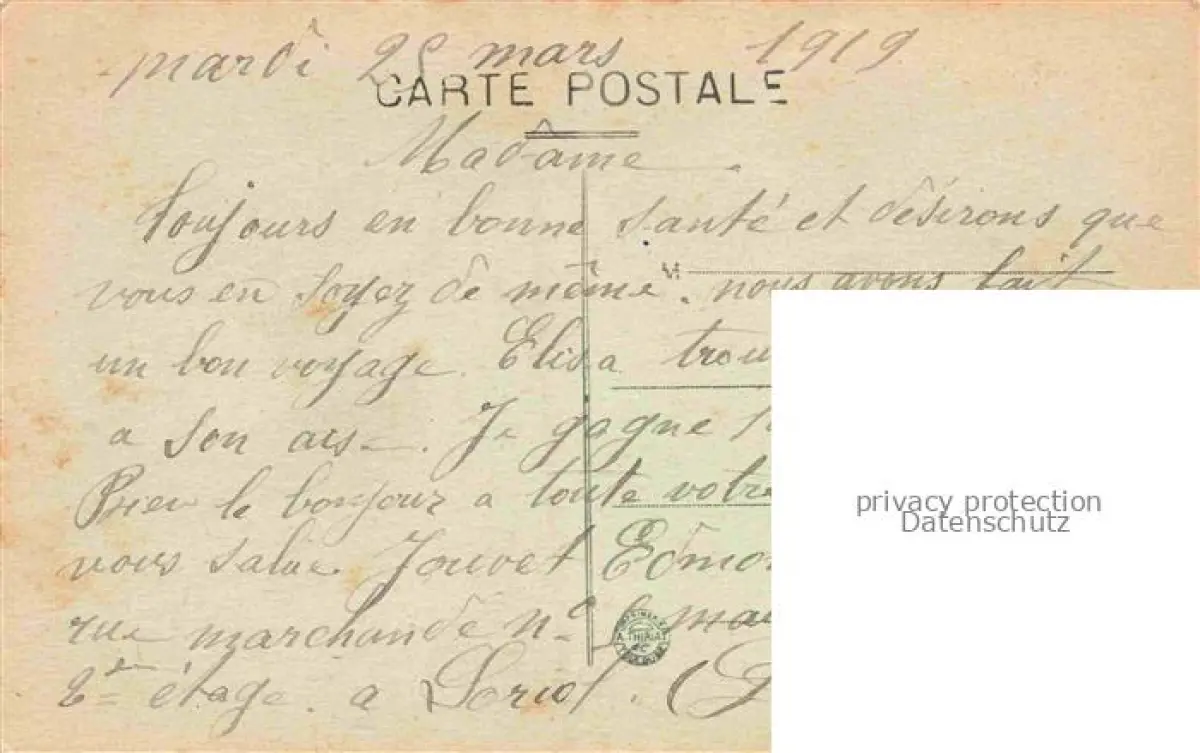 mardi 25 mars 1919
CARTE POSTALE
Madame
toujours en bonne santé et désirons que
M
vous en soyez de même. nous avons fait
un bon voyage. Elisa trou
a son ais. Je gagne
Bien le bonjour a toute votre
vous salue. Jouvet Edmon
rue marchande n°
A. THIRIAT
2me étage. a Loriol. (
privacy protection
Datenschutz